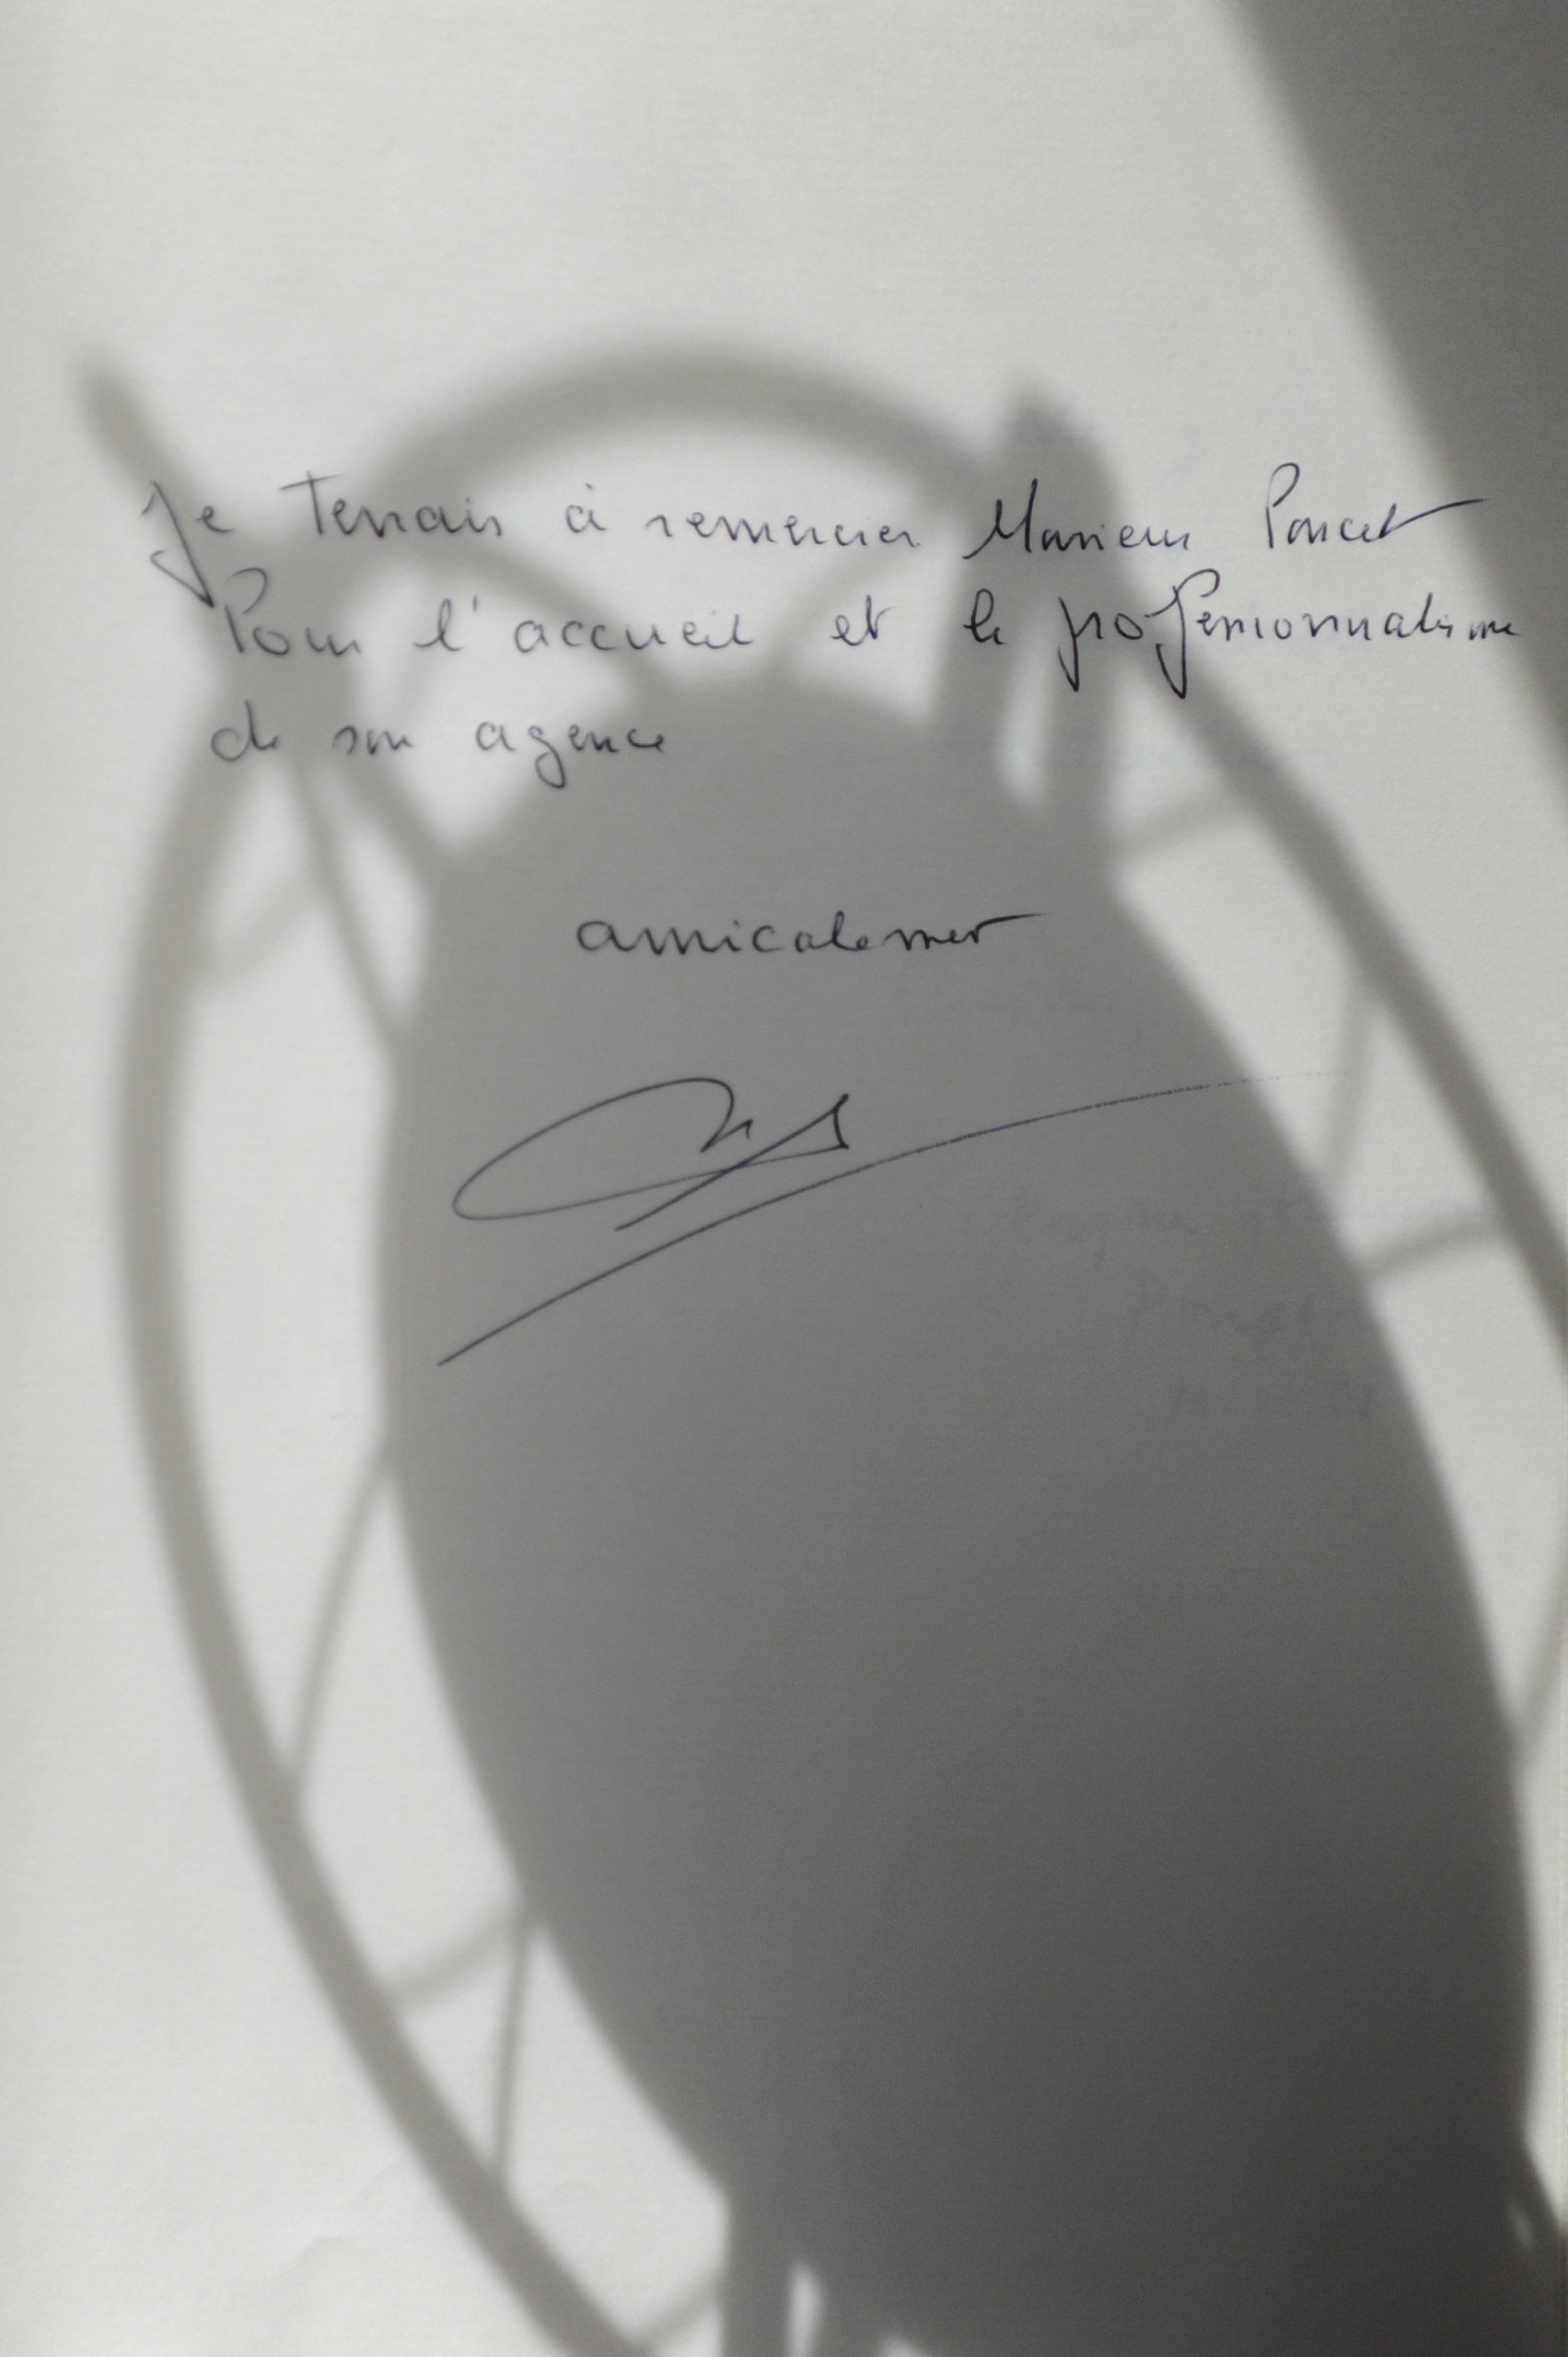 Je tenais à remercier Monsieur Poncet
Pour l'accueil et le professionnalisme
de son agence
amicalement